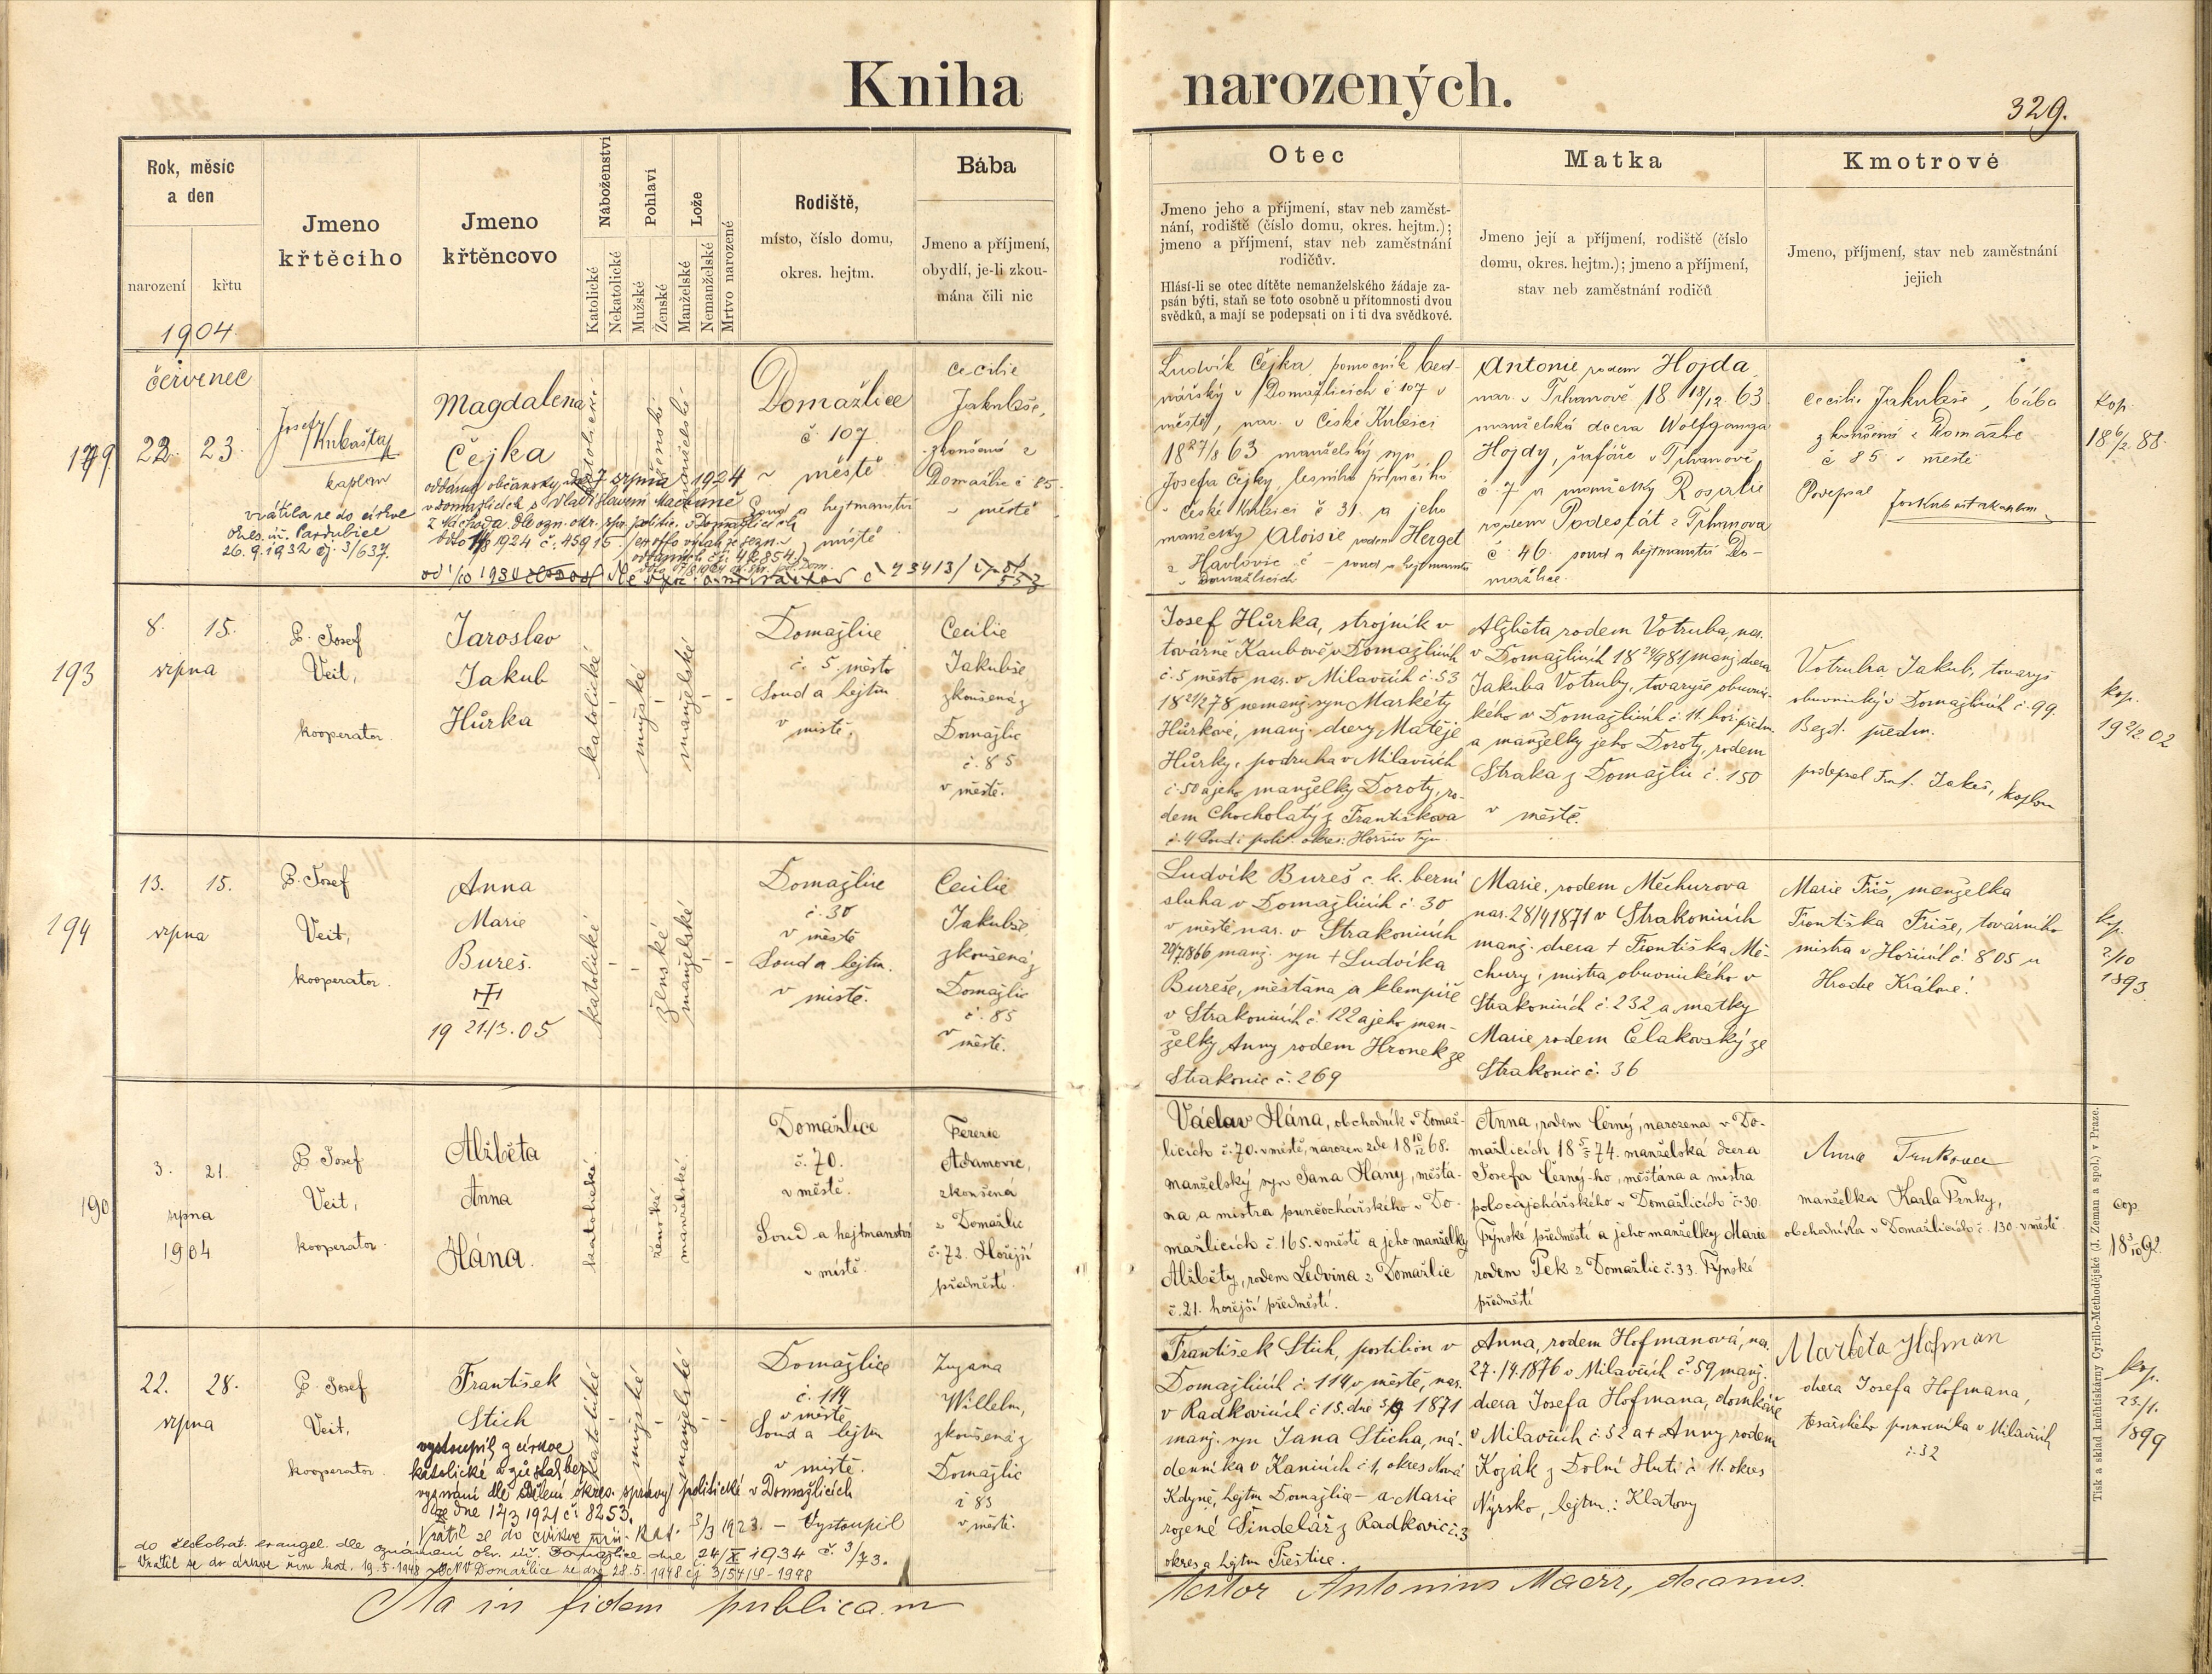 Kniha narozených.
329.
Rok, měsíc
a den
narození
křtu
1904
Jmeno
křtěcího
Jmeno
křtěncovo
Náboženství
Katolické
Nekatolické
Pohlaví
Mužské
Ženské
Lože
Manželské
Nemanželské
Mrtvo narozené
Rodiště,
místo, číslo domu,
okres. hejtm.
Bába
Jmeno a příjmení,
obydlí, je-li zkou-
mána čili nic
Otec
Jmeno jeho a příjmení, stav neb zaměst-
nání, rodiště (číslo domu, okres. hejtm.);
jmeno a příjmení, stav neb zaměstnání
rodičův.
Hlásí-li se otec dítěte nemanželského žádaje za-
psán býti, staň se toto osobně u přítomnosti dvou
svědků, a mají se podepsati on i ti dva svědkové.
Matka
Jmeno její a příjmení, rodiště (číslo
domu, okres. hejtm.); jmeno a příjmení,
stav neb zaměstnání rodičů
Kmotrové
Jmeno, příjmení, stav neb zaměstnání
jejich
179
červenec
22. 23.
Josef
Kubašta
kaplan
Magdalena
Čejka
oddána občansky dne 7 srpna 1924
v Domažlicích s Vladislavem
vrátila se do církve
okres. úř. Pardubice
26. 9. 1932 čj. 3/637.
katolické
ženské
manželské
Domažlice
č. 107
v městě
Soud a hejtmanství
v místě
Cecilie
Jakubše,
zkoušená z
Domažlic č 85
v městě
Ludvík Čejka, pomocník bed-
nářský v Domažlicích č 107 v
městě, nar. v České Kubici
18 27/8 63 manželský syn
Josefa Čejky, lesního
v České Kubici č 31. a jeho
manželky Aloisie rodem Hergel
z Havlovic č – soud a hejtmanství
v Domažlicích
Antonie rodem Hojda
nar. v Trhanově 18 18/12 63
manželská dcera Wolfganga
Hojdy, šafáře v Trhanově
č. 7 a manželky Rosalie
rodem Podestát z Trhanova
č. 46. soud a hejtmanství Do-
mažlice.
Cecilie Jakubše, bába
zkoušená z Domažlic
č 85 v městě
Podepsal
kop.
18 6/2 88.
193
8. 15.
srpna
P. Josef
Veit,
kooperator.
Jaroslav
Jakub
Hůrka
katolické
mužské
manželské
Domažlice
č. 5 město
Soud a hejtm
v místě.
Cecilie
Jakubše
zkoušená z
Domažlic
č. 85
v městě.
Josef Hůrka, strojník v
továrně Kaubově v Domažlicích
č. 5 město nar. v Milavčích č. 53
18 21/2 78 nemanž. syn Markéty
Hůrkové, manž. dcery Matěje
Hůrky, podruha v Milavčích
č. 50 a jeho manželky Doroty, ro-
dem Chocholatý z Františkova
č. 4 Soud i polit. okres: Horšův Týn.
Alžběta rodem Votruba, nar.
v Domažlicích manž. dcera
Jakuba Votruby, tovaryše obuvnic-
kého v Domažlicích č. 11. hoř. předm.
a manželky jeho Doroty, rodem
Straka z Domažlic č. 150
v městě.
Votruba Jakub, tovaryš
obuvnický v Domažlicích č. 99.
Bezd. předm.
podepsal Jakeš, kaplan
kop.
02
194
13. 15.
srpna
P. Josef
Veit,
kooperator.
Anna
Marie
Bureš.
19 21./3. 05
katolické
ženské
manželské
Domažlice
č. 30
v městě
Soud a hejtm.
v místě.
Cecilie
Jakubše,
zkoušená z
Domažlic
č. 85
v městě.
Ludvík Bureš c. k. berní
sluha v Domažlicích č. 30
v městě nar. v Strakonicích
manž. syn + Ludvíka
Bureše, měšťana a klempíře
v Strakonicích č. 122 a jeho man-
želky Anny rodem Hronek ze
Strakonic č. 269
Marie, rodem Měchurova
nar. 28/4 1871 v Strakonicích
manž. dcera + Františka Mě-
chury, mistra obuvnického v
Strakonicích č. 232 a matky
Marie rodem Čelakovský ze
Strakonic č. 36
Marie Friš, manželka
Františka Friše, továrního
mistra v č 805 u
Hradce Králové.
kop.
2/10
1893
190
3. 21.
srpna
1904
P. Josef
Veit,
kooperator.
Alžběta
Anna
Hána.
katolické.
ženské.
manželské.
Domažlice
č. 70.
v městě.
Soud a hejtmanství
v místě.
Terezie
Adamovic,
zkoušená
z Domažlic
č. 72. Hořejší
předměstí.
Václav Hána, obchodník v Domaž-
licích č. 70. v městě, narozen zde 18 10/12 68.
manželský syn Jana Hány, měšťa-
na a mistra punčochářského v Do-
mažlicích č. 165. v městě a jeho manželky
Alžběty, rodem Ledvina z Domažlic
č. 21. hořejší předměstí.
Anna, rodem Černý, narozena v Do-
mažlicích 18 5/5 74. manželská dcera
Josefa Černý-ho, měšťana a mistra
v Domažlicích č. 30.
Týnské předměstí a jeho manželky Marie
rodem Pek z Domažlic č. 33. Týnské
předměstí
Anna Trnkova
manželka Karla Trnky,
obchodníka v Domažlicích č. 130. v městě.
cop.
18 3/10 92.
22. 28.
srpna
P. Josef
Veit,
kooperator.
František
Stich
vystoupil z církve
katolické a zůstal bez
vyznání dle sdělení okres. správy politické v Domažlicích
ze dne 12/3 1921 č. 8253.
Vrátil se do církve řím. kat. 3/3 1923. – Vystoupil
do českobrat. evangel. dle oznámení okr. úř. Domažlice dne 24/X 1934 č. 3/73.
– Vrátil se do církve řím. kat. 19. 5. 1948 ONV Domažlice ze dne 28. 5. 1948
katolické
mužské
manželské
Domažlice
č. 114
v městě
Soud a hejtm
v místě.
Zuzana
Willelm,
zkoušená z
Domažlic
č 83
v městě.
František Stich, postilion v
Domažlicích č. 114 v městě, nar.
v Radkovicích č 15. dne 5/9 1871
manž. syn Jana Sticha, ná-
denníka v Kanicích č 1, okres Nová
Kdyně, hejtm Domažlice – a Marie
rozené Šindelář z Radkovic č. 3
okres a hejtm Přeštice.
Anna, rodem Hofmanová, nar.
27. /4. 1876 v Milavčích č. 59 manž.
dcera Josefa Hofmana, domkáře
v Milavčích č. 52 a + Anny rodem
Kozák z Dolní Huti č. 11. okres
Nýrsko, hejtm.: Klatovy
Markéta Hofman
dcera Josefa Hofmana,
tesařského pomocníka v Milavčích
č. 32
kop.
23/1.
1899
Ita in fidem publicam
testor Antonius Maerz, decanus.
Tisk a sklad kněhtiskárny Cyrillo-Methodějské (J. Zeman a spol.) v Praze.